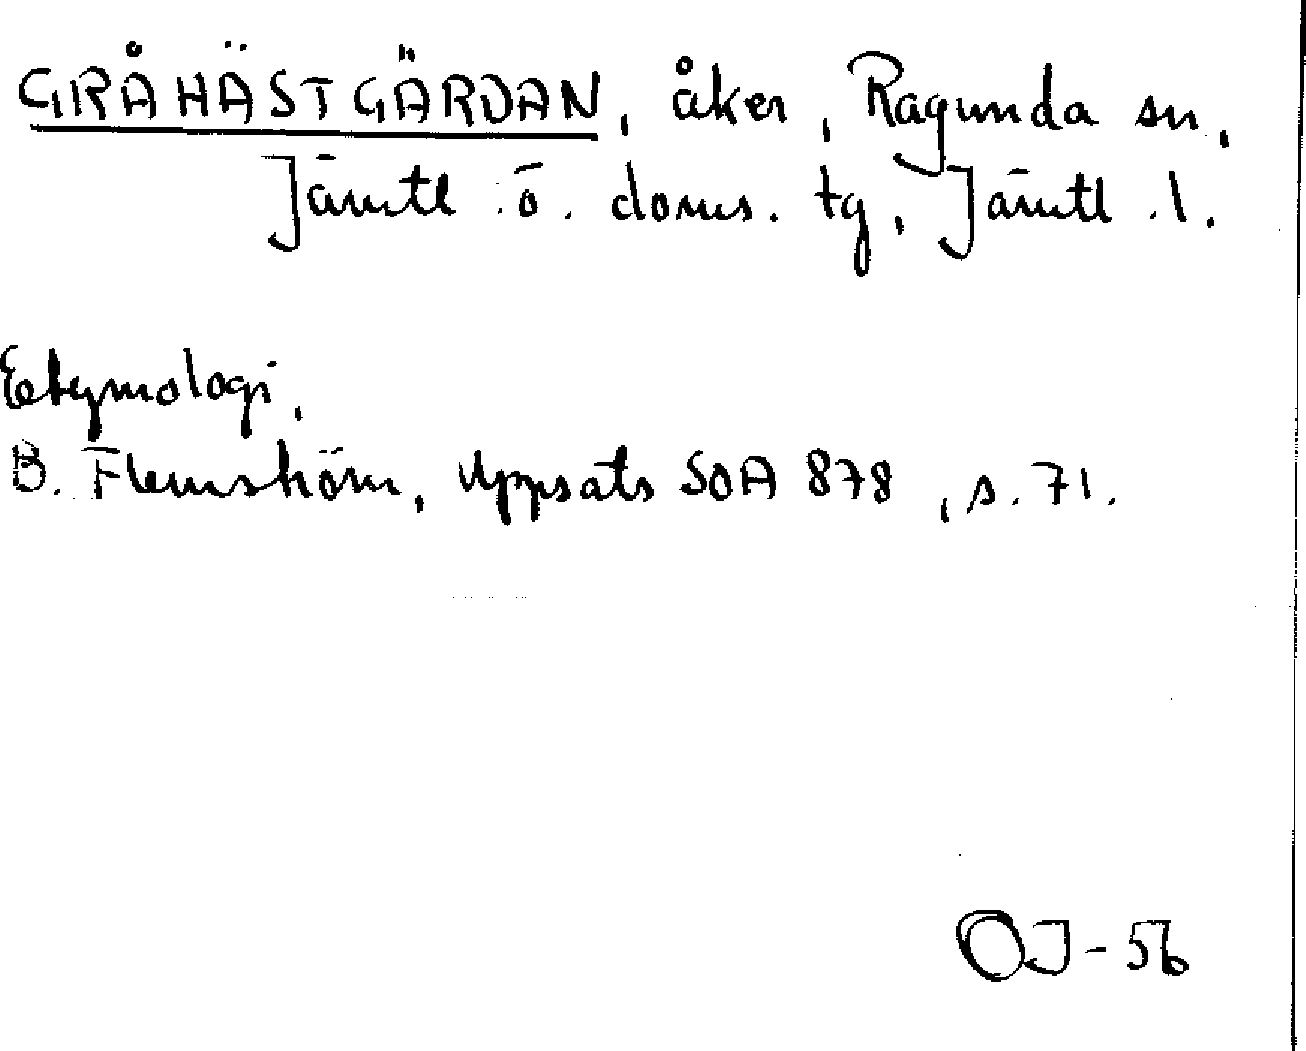 GRÅHÄSTGÄRDAN, åker, Ragunda sn,
Jämtl. ö. doms. tg, Jämtl. l.
Etymologi,
B. Flemström, Uppsats SOA 878, s. 71.
OJ-56